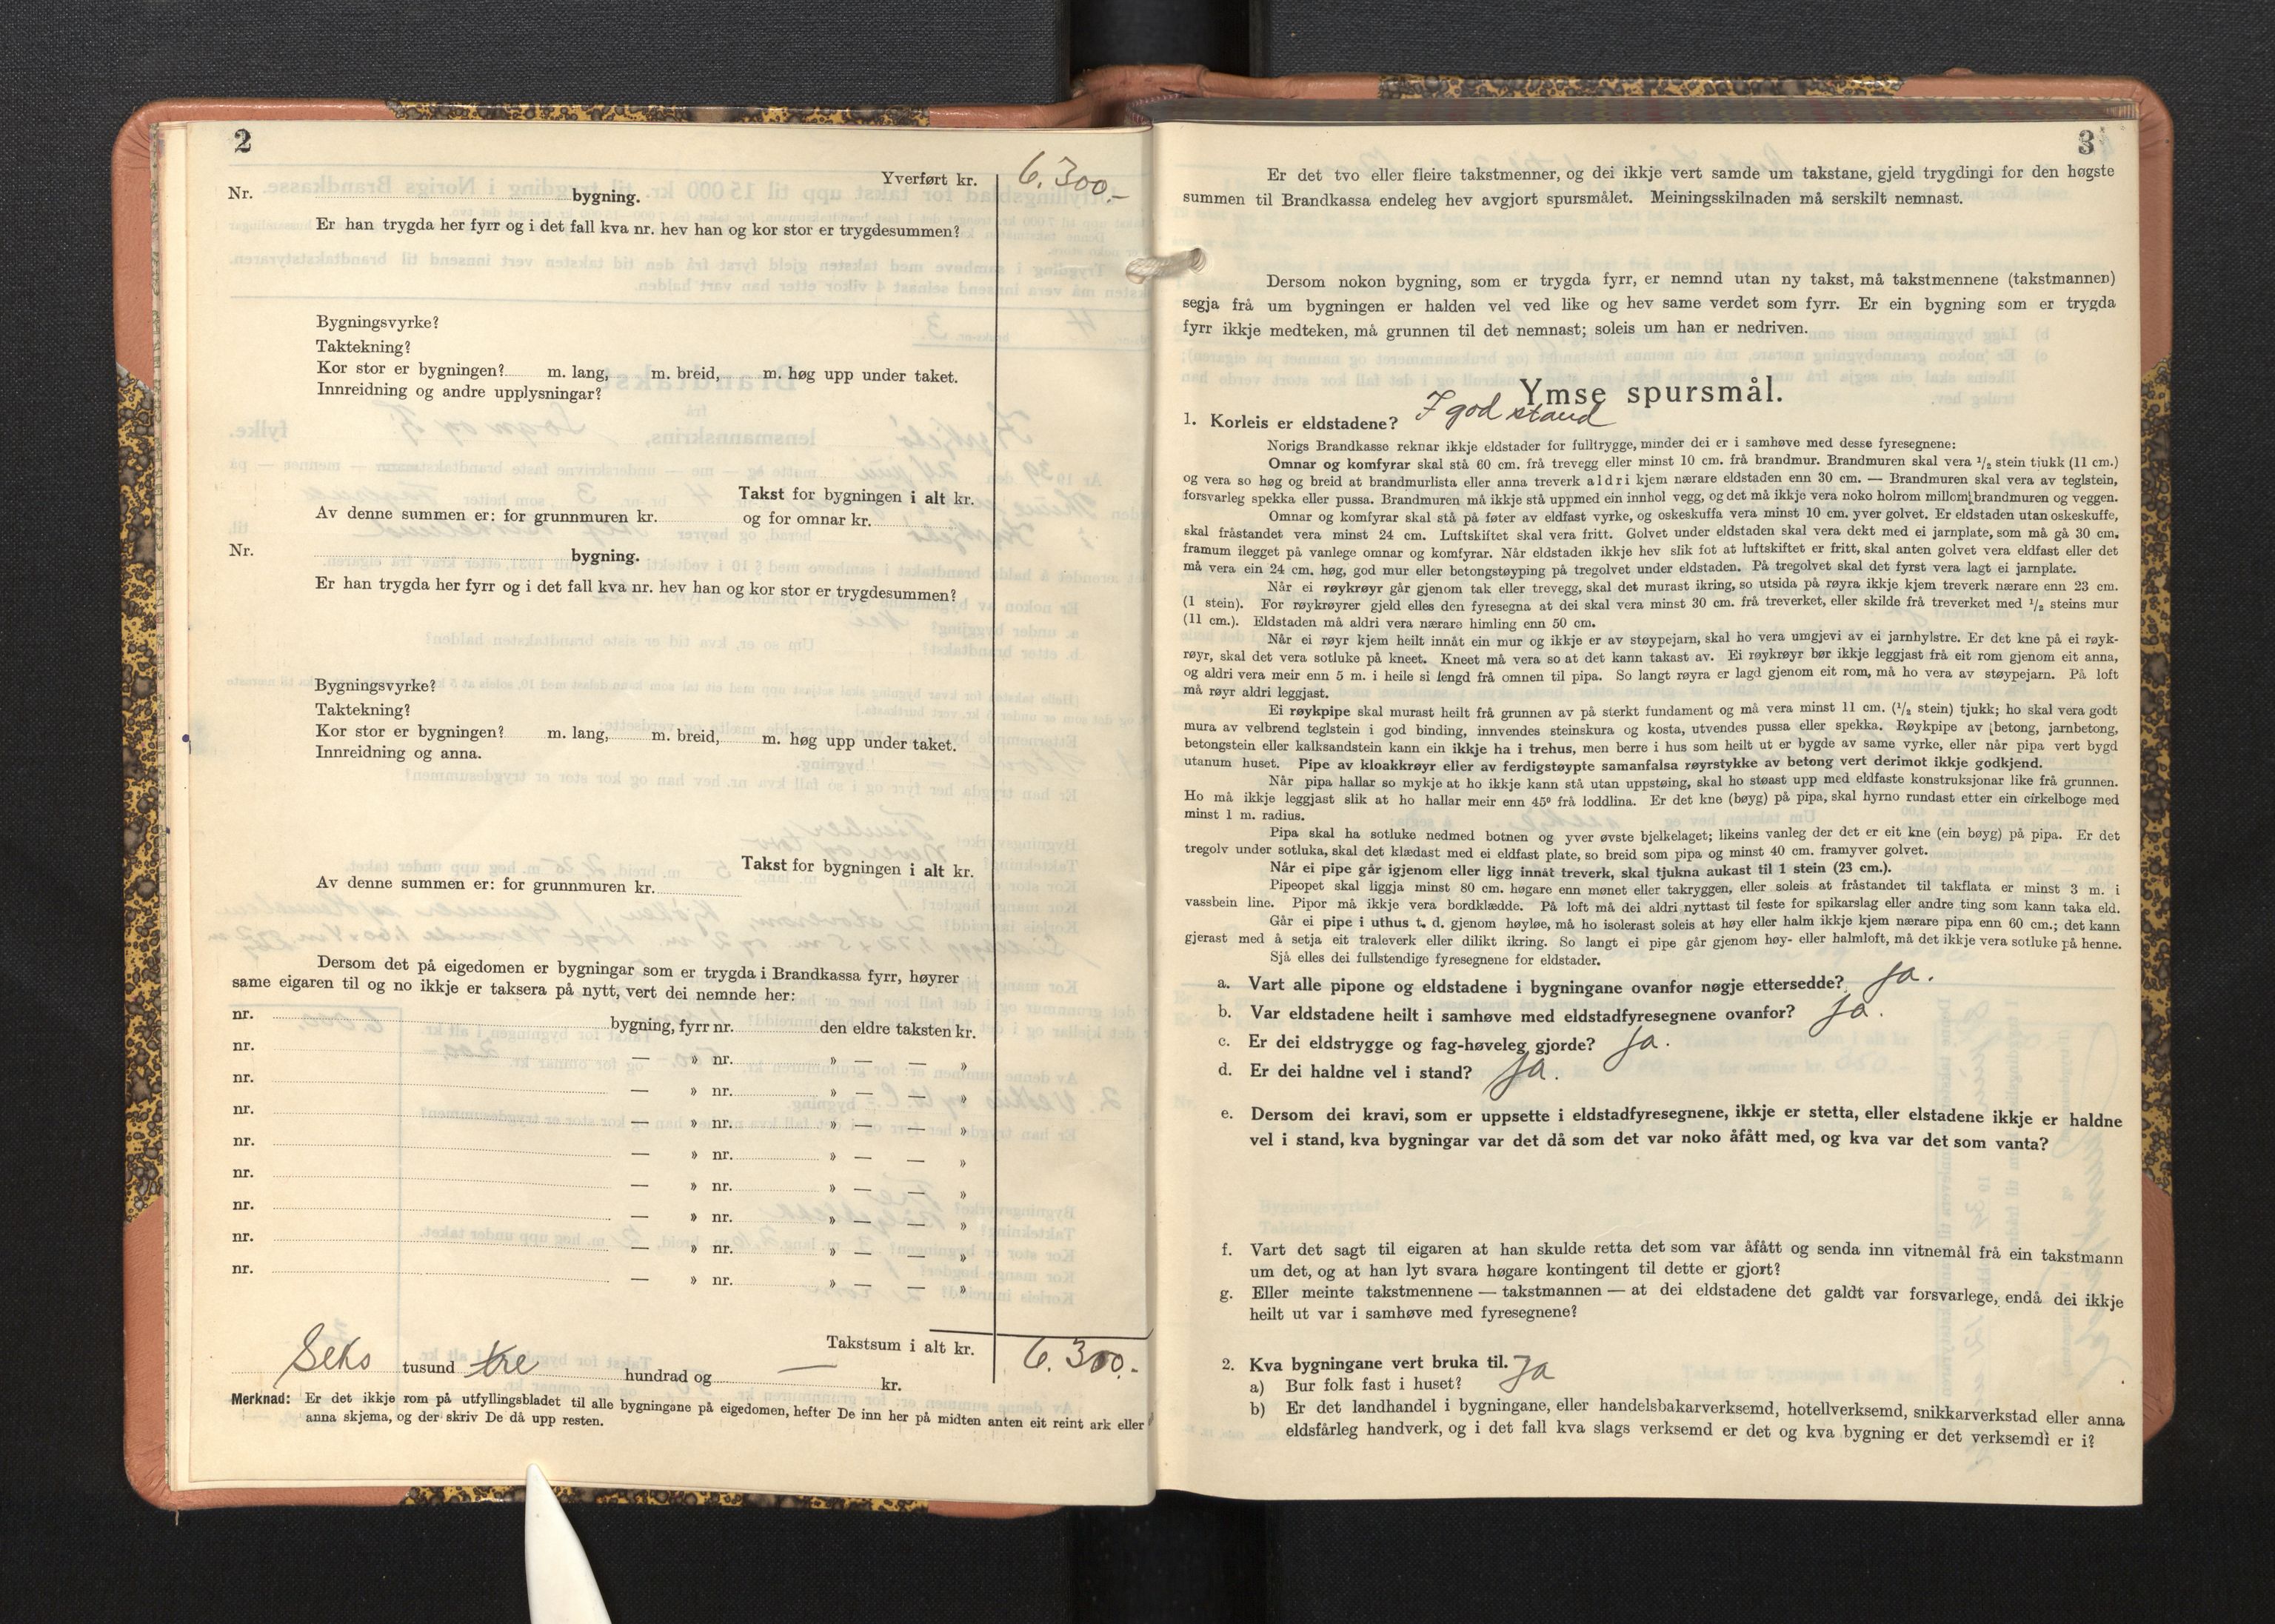 2
Yverført kr. 6.300.-
Nr. bygning.
Er han trygda her fyrr og i det fall kva nr. hev han og kor stor er trygdesummen?
Bygningsvyrke?
Taktekning?
Kor stor er bygningen? m. lang, m. breid, m. høg upp under taket.
Innreidning og andre upplysningar?
Takst for bygningen i alt kr.
Av denne summen er: for grunnmuren kr. og for omnar kr.
Nr. bygning.
Er han trygda her fyrr og i det fall kva nr. hev han og kor stor er trygdesummen?
Bygningsvyrke?
Taktekning?
Kor stor er bygningen? m. lang, m. breid, m. høg upp under taket.
Innreidning og anna.
Takst for bygningen i alt kr.
Av denne summen er: for grunnmuren kr.
Dersom det på eigedomen er bygningar som er trygda i Brandkassa fyrr, høyrer
same eigaren til og no ikkje er taksera på nytt, vert dei nemnde her:
nr. bygning, fyrr nr. den eldre taksten kr.
nr. — » nr. » — — »
nr. — » nr. » — — »
nr. — » nr. » — — »
nr. — » nr. » — — »
nr. — » nr. » — — »
nr. — » nr. » — — »
nr. — » nr. » — — »
nr. — » nr. » — — »
Takstsum i alt kr. 6.300.-
Seks tusund tre hundrad og — kr.
Merknad: Er det ikkje rom på utfyllingsbladet til alle bygningane på eigedomen, hefter De inn her på midten anten eit reint ark eller
anna skjema, og der skriv De då upp resten.
3
Er det tvo eller fleire takstmenner, og dei ikkje vert samde um takstane, gjeld trygdingi for den høgste
summen til Brandkassa endeleg hev avgjort spursmålet. Meiningsskilnaden må serskilt nemnast.
Dersom nokon bygning, som er trygda fyrr, er nemnd utan ny takst, må takstmennene (takstmannen)
segja frå um bygningen er halden vel ved like og hev same verdet som fyrr. Er ein bygning som er trygda
fyrr ikkje medteken, må grunnen til det nemnast; soleis um han er nedriven.
Ymse spursmål.
1. Korleis er eldstadene? I god stand
Norigs Brandkasse reknar ikkje eldstader for fulltrygge, minder dei er i samhøve med desse fyresegnene:
Omnar og komfyrar skal stå 60 cm. frå trevegg eller minst 10 cm. frå brandmur. Brandmuren skal vera ½ stein tjukk (11 cm.)
og vera so høg og breid at brandmurlista eller anna treverk aldri kjem nærare eldstaden enn 30 cm. — Brandmuren skal vera av teglstein,
forsvarleg spekka eller pussa. Brandmuren må ikkje stå uppmed ein innhol vegg, og det må ikkje vera noko holrom millom brandmuren og veggen.
Omnar og komfyrar skal stå på føter av eldfast vyrke, og oskeskuffa vera minst 10 cm. yver golvet. Er eldstaden utan oskeskuffe,
skal fråstandet vera minst 24 cm. Luftskiftet skal vera fritt. Golvet under eldstaden skal vera dekt med ei jarnplate, som må gå 30 cm.
framum ilegget på vanlege omnar og komfyrar. Når eldstaden ikkje hev slik fot at luftskiftet er fritt, skal anten golvet vera eldfast eller det
må vera ein 24 cm. høg, god mur eller betongstøyping på tregolvet under eldstaden. På tregolvet skal det fyrst vera lagt ei jarnplate.
Når ei røykrøyr går gjenom tak eller trevegg, skal det murast ikring, so utsida på røyra ikkje kjem treverk nærare enn 23 cm.
(1 stein). For røykrøyrer gjeld elles den fyresegna at dei skal vera minst 30 cm. frå treverket, eller skilde frå treverket med ½ steins mur
(11 cm.). Eldstaden må aldri vera nærare himling enn 50 cm.
Når ei røyr kjem heilt innåt ein mur og ikkje er av støypejarn, skal ho vera umgjevi av ei jarnhylstre. Er det kne på ei røyk-
røyr, skal det vera sotluke på kneet. Kneet må vera so at det kann takast av. Ei røykrøyr bør ikkje leggjast frå eit rom gjenom eit anna,
og aldri vera meir enn 5 m. i heile si lengd frå omnen til pipa. So langt røyra er lagd gjenom eit rom, må ho vera av støypejarn. På loft
må røyr aldri leggjast.
Ei røykpipe skal murast heilt frå grunnen av på sterkt fundament og må vera minst 11 cm. (½ stein) tjukk; ho skal vera godt
mura av velbrend teglstein i god binding, innvendes steinskura og kosta, utvendes pussa eller spekka. Røykpipe av betong, jarnbetong,
betongstein eller kalksandstein kann ein ikkje ha i trehus, men berre i hus som heilt ut er bygde av same vyrke, eller når pipa vert bygd
utanum huset. Pipe av kloakkrøyr eller av ferdigstøypte samanfalsa røyrstykke av betong vert derimot ikkje godkjend.
Når pipa hallar so mykje at ho ikkje kann stå utan uppstøing, skal ho støast upp med eldfaste konstruksjonar like frå grunnen.
Ho må ikkje leggjast slik at ho hallar meir enn 45° frå loddlina. Er det kne (bøyg) på pipa, skal hyrno rundast etter ein cirkelboge med
minst 1 m. radius.
Pipa skal ha sotluke nedmed botnen og yver øvste bjelkelaget; likeins vanleg der det er eit kne (ein bøyg) på pipa. Er det
tregolv under sotluka, skal det klædast med ei eldfast plate, so breid som pipa og minst 40 cm. framyver golvet.
Når ei pipe går igjenom eller ligg innåt treverk, skal tjukna aukast til 1 stein (23 cm.).
Pipeopet skal liggja minst 80 cm. høgare enn mønet eller takryggen, eller soleis at fråstandet til takflata er minst 3 m. i
vassbein line. Pipor må ikkje vera bordklædde. På loft må dei aldri nyttast til feste for spikarslag eller andre ting som kann taka eld.
Går ei pipe i uthus t. d. gjenom høyløe, må ho isolerast soleis at høy eller halm ikkje kjem nærare pipa enn 60 cm.; det kann
gjerast med å setja eit traleverk eller dilikt ikring. So langt ei pipe går gjenom høy- eller halmloft, må det ikkje vera sotluke på henne.
Sjå elles dei fullstendige fyresegnene for eldstader.
a. Vart alle pipone og eldstadene i bygningane ovanfor nøgje ettersedde? Ja.
b. Var eldstadene heilt i samhøve med eldstadfyresegnene ovanfor? Ja.
c. Er dei eldstrygge og fag-høveleg gjorde? Ja.
d. Er dei haldne vel i stand? Ja.
e. Dersom dei kravi, som er uppsette i eldstadfyresegnene, ikkje er stetta, eller elstadene ikkje er haldne
vel i stand, kva bygningar var det då som det var noko åfått med, og kva var det som vanta?
f. Vart det sagt til eigaren at han skulde retta det som var åfått og senda inn vitnemål frå ein takstmann
um det, og at han lyt svara høgare kontingent til dette er gjort?
g. Eller meinte takstmennene — takstmannen — at dei eldstadene det galdt var forsvarlege, endå dei ikkje
heilt ut var i samhøve med fyresegnene?
2. Kva bygningane vert bruka til.
a) Bur folk fast i huset? Ja
b) Er det landhandel i bygningane, eller handelsbakarverksemd, hotellverksemd, snikkarverkstad eller anna
eldsfårleg handverk, og i det fall kva slags verksemd er det og kva bygning er det verksemdi er i?